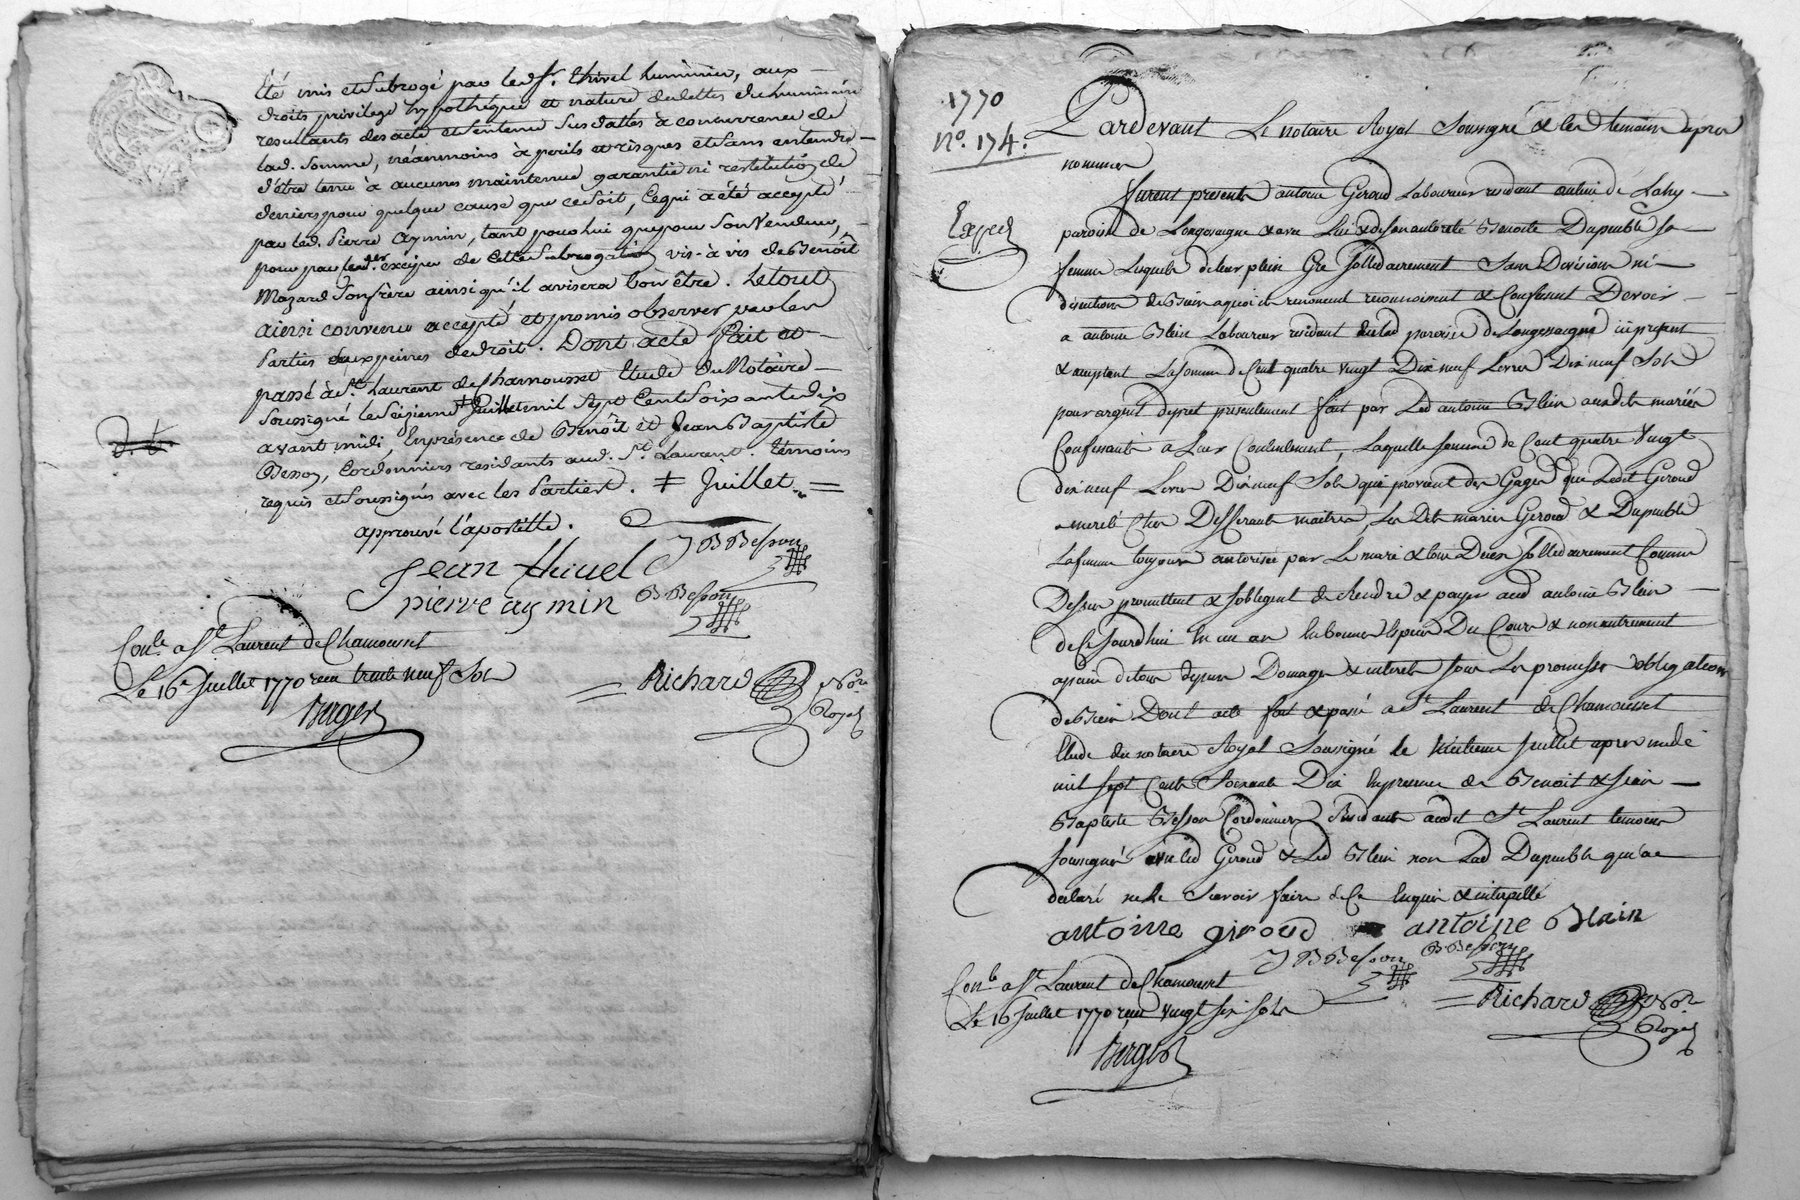 été mis et subrogé par led. Sr. thivel huminier, aux
droits privilege hypothéque et nature de dettes du
resultants des acte et sentence susdattés à concurrence de
lad. somme, néanmoins à perils et risques et sans entendre
d'être tenu à aucunes maintenue garantie ni restitution de
deniers pour quelque cause que ce soit, ce qui a été accepté
par led. Pierre aymin, tant pour lui que pour son vendeur,
pour par le der. exciper de cette subrogation vis-à vis de Benoît
Mazard son frère ainsi qu'il avisera bon être. Le tout
ainsi convenu accepté et promis observer par les
Parties aux peines de droit. Dont acte fait et
passé à St. Laurent de Chamousset Etude du Notaire
soussigné le seizieme ‡ juillet mil sept cent soixante dix
avant midi, En présence de Benoît et Jean Baptiste
Besson, Cordonniers residants aud. St. Laurent. témoins
requis et soussignés avec les Parties. ‡ Juillet =
approuvé l'apostille.
J B Besson
Jean thivel
B Besson
pierre aymin
Conle. a St. Laurent de Chamousset
Le 16e Juillet 1770 reçu trente neuf sols
Richard Nore
Royal
Berger
1770
N°. 174.
Pardevant Le notaire Royal Soussigné & les temoins après
nommés
Exped
furent presents antoine Giroud Laboureur residant au lieu de Lahy
paroisse de Longessaigne & avec Lui & de son autorité Benoite Dupuble sa
femme Lesquels de leur plein Gré sollidairement sans Division ni
discution de Bien a quoi ils renoncent reconnoissent & Confessent Devoir
a antoine Blein Laboureur residant susdite paroisse de Longessaigne ici present
& acceptant La somme de Cent quatre vingt Dix neuf Livres Dix neuf sols
pour argent de pret presentement fait par Led antoine Blein auxdits mariés
Confessants a Leur Contentement, Laquelle somme de Cent quatre Vingt
dix neuf Livres Dix neuf sols que provient des Gages que Ledit Giroud
a merité Chez Differants maitres Les Dits mariés Giroud & Dupuble
La femme toujours autorisée par Le mari & tous Deux sollidairement Comme
Dessus promettent & s'obligent de Rendre & payer aud antoine Blein
de Ce Jourd'hui en un an En bonnes Especes Du Cours & non autrement
a peine de tous depens Domages & interets sous Les promesses obligations
de Bien Dont acte fait & passé a St. Laurent de Chamousset
Etude du notaire Royal soussigné le Juillet apres midi
mil sept Cents Soixante Dix En presence de Benoit & Jean
Baptiste Besson Cordonniers Residants audit St. Laurent temoins
soussignés avec led Giroud & Led Blein non Lad Dupuble qui a
declaré ne Le Scavoir faire de Ce Enquise & interpellé
antoine giroud antoine Blain
J B Besson B Besson
Conle a St. Laurent de Chamousset
Richard Nore
Le 16 Juillet 1770 reçu vingt six sols
Royal
Berger